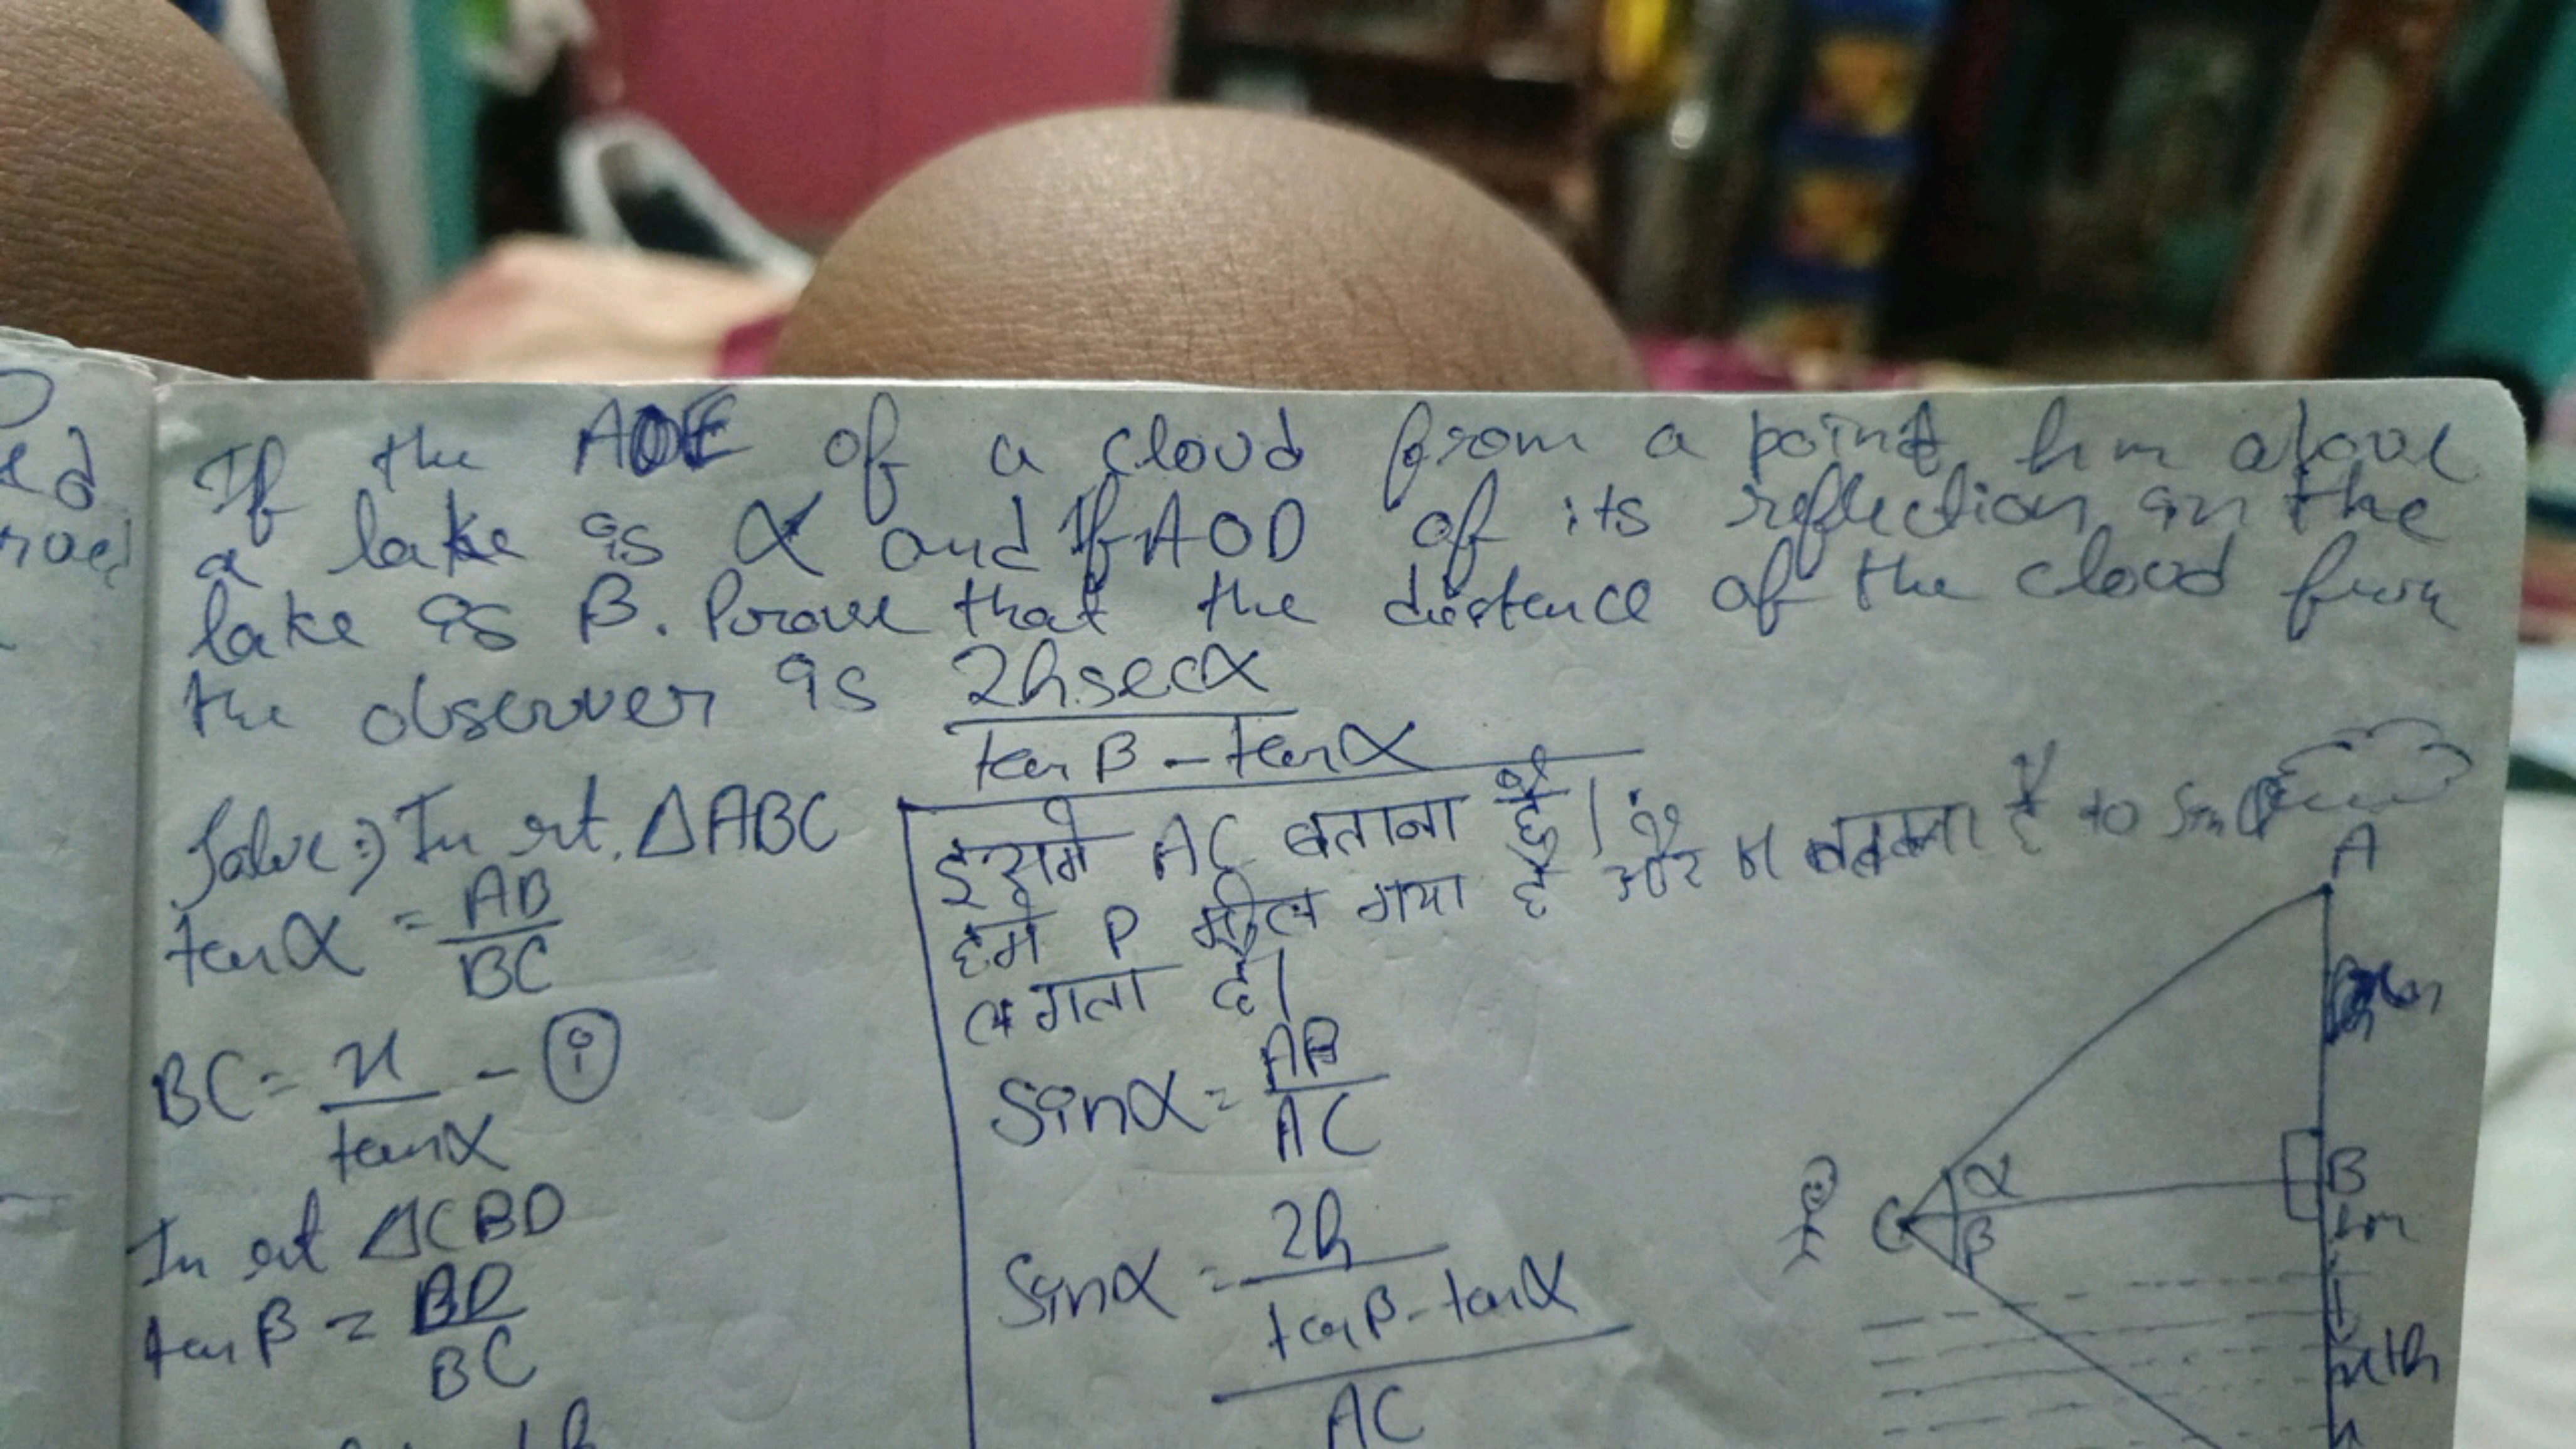 If the AOE of a cloud from a point hm above
a lake is α and if AOD of its reflection in the
lake is β. Prove that the distence of the cloud from
the observer is 2hsecα
tanβ - tanα
Solve:) In rt. ΔABC
tanα = AB
BC
BC = x - (i)
tanα
In rt ΔCBD
tanβ = BD
BC
इसमे AC बताना है।
हमे P मील गया है और to Sin
लगता है।
Sinα = AB
AC
Sinα = 2h
tanβ - tanα
AC
A
α
B
C
β
hm
x+h